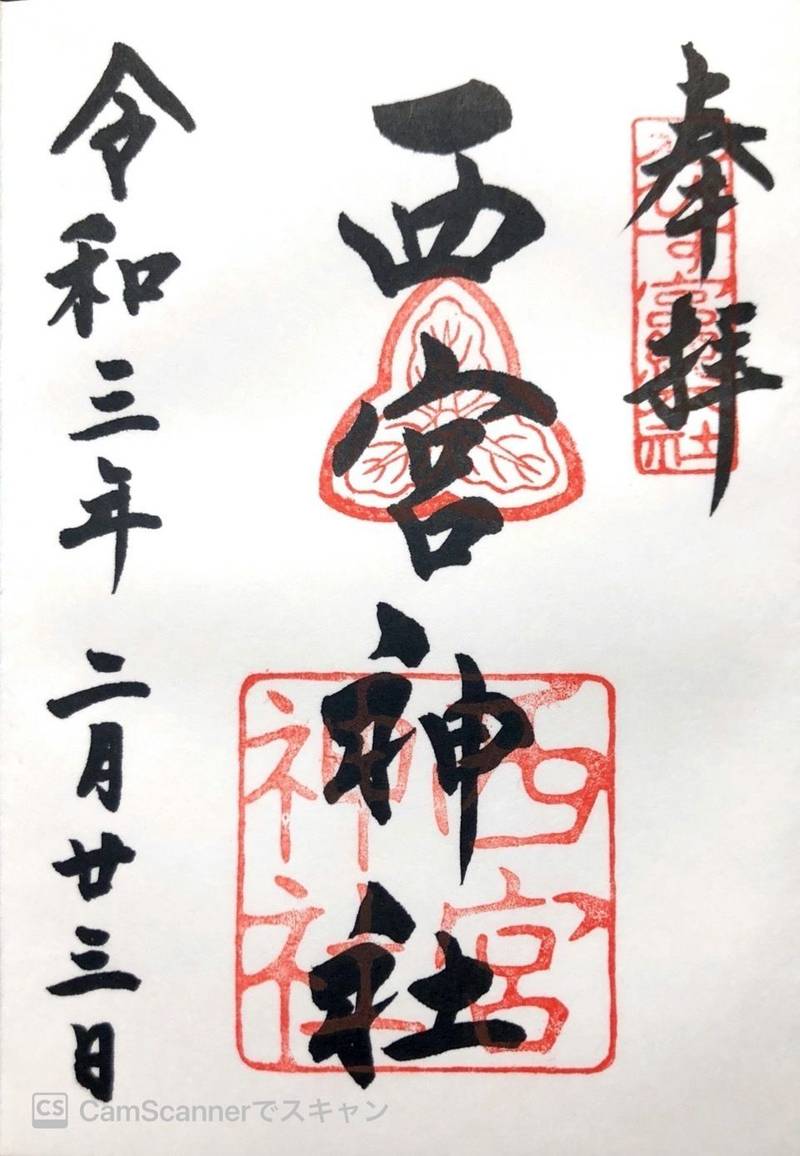 奉拝
西宮神社
令和三年二月廿三日
西宮
神社
CS CamScannerでスキャン